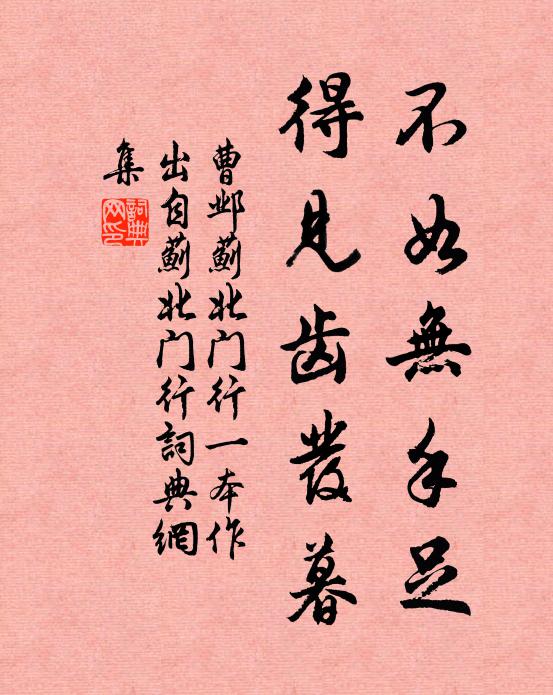 不如無手足
得見齿發暮
曹邺蓟北门行一本作
出自蓟北门行詞典網
集
詞典
网印